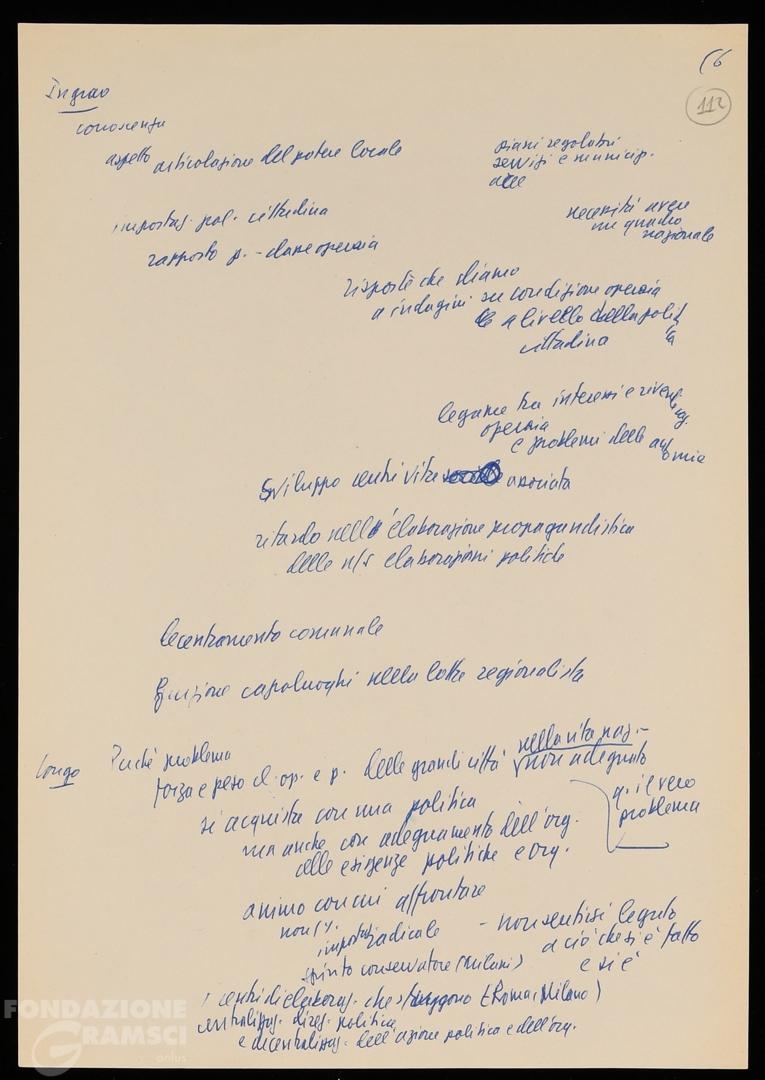 56
112
Ingrao
conoscenza
aspetto articolazione del potere locale
piani regolatori
servizi e municip.
necessità avere
un quadro
nazionale
impostaz. pol. cittadina
rapporto p. - classe operaia
risposte che diamo
a indagini su condizione operaia
e a livello della polit
ca
cittadina
legame tra interessi e rivendicaz.
operaia
e problemi delle autonomie
sviluppo centri vita associata
ritardo nell'elaborazione propagandistica
delle n/s elaborazioni politiche
decentramento comunale
funzione capoluoghi nella lotta regionalista
Longo
Perché problema
forza e peso cl. op. e p. delle grandi città nella vita naz.- non adeguato
si acquista con una politica
ma anche con adeguamento dell'org.
alle esigenze politiche e org.
q. il vero
problema
animo con cui affrontare
non
impostaz. radicale - non sentirsi legato
a ciò che si è fatto
e si è
spirito conservatore (Milani)
i centri di elaboraz. che sfuggono (Roma, Milano)
centralizzaz. direz. politica
e decentralizzaz. dell'azione politica e dell'org.
FONDAZIONE
GRAMSCI
onlus